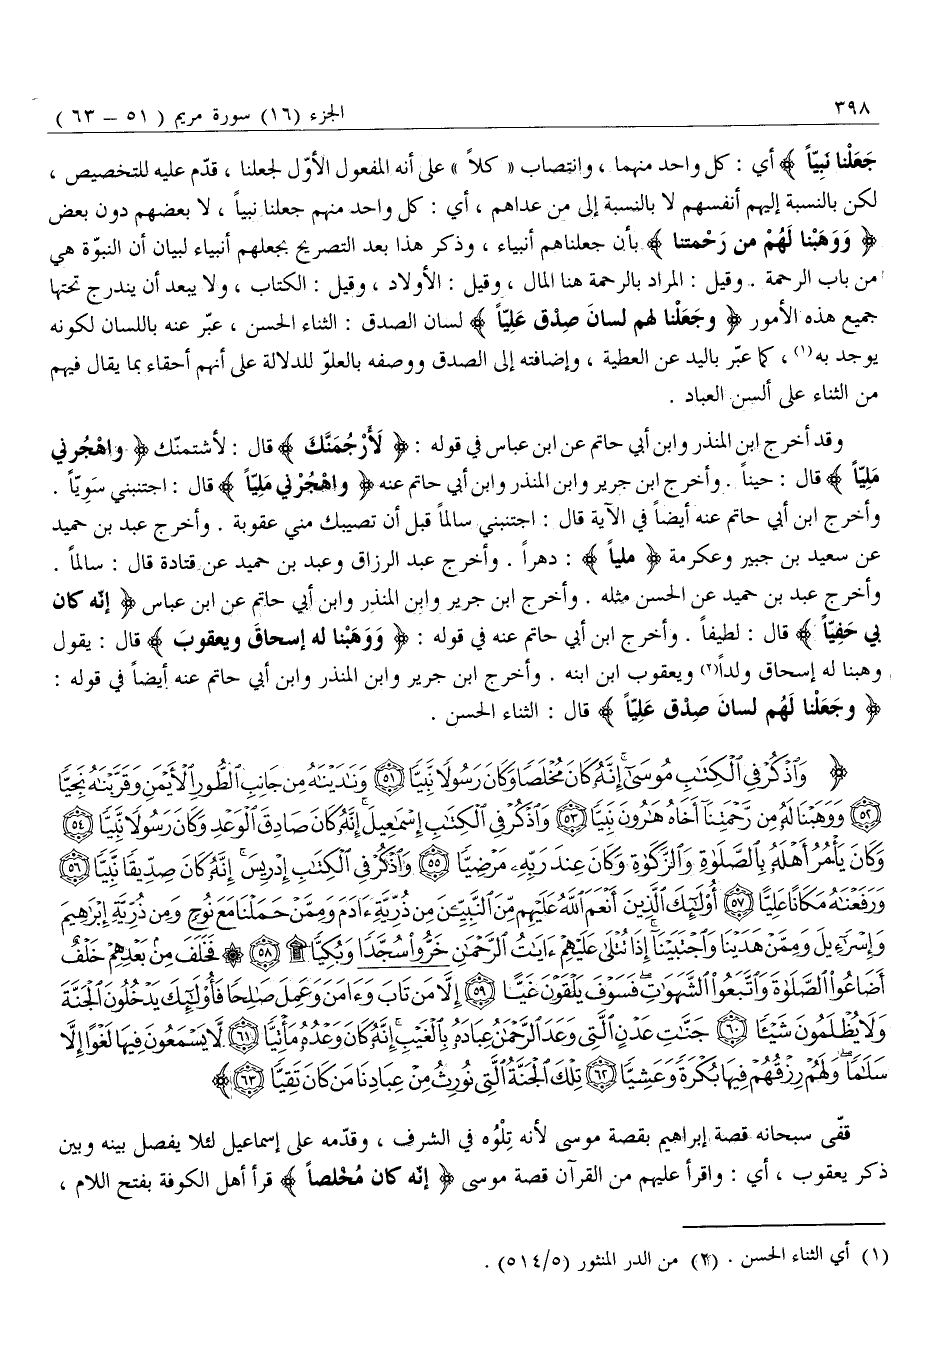 ٣٩٨
الجزء (١٦) سورة مريم ( ٥١ – ٦٣ )
جَعَلْنا نَبِيّاً ﴾ أي : كل واحد منهما ، وانتصاب « كلاً » على أنه المفعول الأوّل لجعلنا ، قدّم عليه للتخصيص ،
لكن بالنسبة إليهم أنفسهم لا بالنسبة إلى من عداهم ، أي : كل واحد منهم جعلنا نبياً ، لا بعضهم دون بعض
﴿ وَوَهَبْنا لَهُمْ من رَحْمتنا ﴾ بأن جعلناهم أنبياء ، وذكر هذا بعد التصريح بجعلهم أنبياء لبيان أن النبوّة هي
من باب الرحمة . وقيل : المراد بالرحمة هنا المال ، وقيل : الأولاد ، وقيل : الكتاب ، ولا يبعد أن يندرج تحتها
جميع هذه الأمور ﴿ وجَعَلْنا لهم لسانَ صِدْق عَلِيّاً ﴾ لسان الصدق : الثناء الحسن ، عبّر عنه باللسان لكونه
يوجد به(١) ، كما عبّر باليد عن العطية ، وإضافته إلى الصدق ووصفه بالعلوّ للدلالة على أنهم أحقاء بما يقال فيهم
من الثناء على ألسن العباد .
وقد أخرج ابن المنذر وابن أبي حاتم عن ابن عباس في قوله : ﴿ لَأَرْجُمَنَّكَ ﴾ قال : لأشتمنّك ﴿ واهْجُرني
مَلِيّاً ﴾ قال : حيناً . وأخرج ابن جرير وابن المنذر وابن أبي حاتم عنه ﴿ واهْجُرْني مَلِيّاً ﴾ قال : اجتنبني سَوِيّاً .
وأخرج ابن أبي حاتم عنه أيضاً في الآية قال : اجتنبني سالماً قبل أن تصيبك مني عقوبة . وأخرج عبد بن حميد
عن سعيد بن جبير وعكرمة ﴿ ملياً ﴾ : دهراً . وأخرج عبد الرزاق وعبد بن حميد عن قتادة قال : سالماً .
وأخرج عبد بن حميد عن الحسن مثله . وأخرج ابن جرير وابن المنذر وابن أبي حاتم عن ابن عباس ﴿ إنّه كان
بي حَفِيّاً ﴾ قال : لطيفاً . وأخرج ابن أبي حاتم عنه في قوله : ﴿ وَوَهَبْنا له إسحاقَ ويعقوبَ ﴾ قال : يقول
وهبنا له إسحاق ولداً(٢) ويعقوب ابن ابنه . وأخرج ابن جرير وابن المنذر وابن أبي حاتم عنه أيضاً في قوله :
﴿ وجَعَلْنا لَهُم لسانَ صِدْق عَلِيّاً ﴾ قال : الثناء الحسن .
﴿ وَٱذْكُرْ فِى ٱلْكِتَٰبِ مُوسَىٰٓ ۚ إِنَّهُۥ كَانَ مُخْلَصًا وَكَانَ رَسُولًا نَّبِيًّا ﴿٥١﴾ وَنَٰدَيْنَٰهُ مِن جَانِبِ ٱلطُّورِ ٱلْأَيْمَنِ وَقَرَّبْنَٰهُ نَجِيًّا
﴿٥٢﴾ وَوَهَبْنَا لَهُۥ مِن رَّحْمَتِنَآ أَخَاهُ هَٰرُونَ نَبِيًّا ﴿٥٣﴾ وَٱذْكُرْ فِى ٱلْكِتَٰبِ إِسْمَٰعِيلَ ۚ إِنَّهُۥ كَانَ صَادِقَ ٱلْوَعْدِ وَكَانَ رَسُولًا نَّبِيًّا ﴿٥٤﴾
وَكَانَ يَأْمُرُ أَهْلَهُۥ بِٱلصَّلَوٰةِ وَٱلزَّكَوٰةِ وَكَانَ عِندَ رَبِّهِۦ مَرْضِيًّا ﴿٥٥﴾ وَٱذْكُرْ فِى ٱلْكِتَٰبِ إِدْرِيسَ ۚ إِنَّهُۥ كَانَ صِدِّيقًا نَّبِيًّا ﴿٥٦﴾
وَرَفَعْنَٰهُ مَكَانًا عَلِيًّا ﴿٥٧﴾ أُو۟لَٰٓئِكَ ٱلَّذِينَ أَنْعَمَ ٱللَّهُ عَلَيْهِم مِّنَ ٱلنَّبِيِّـۧنَ مِن ذُرِّيَّةِ ءَادَمَ وَمِمَّنْ حَمَلْنَا مَعَ نُوحٍ وَمِن ذُرِّيَّةِ إِبْرَٰهِيمَ
وَإِسْرَٰٓءِيلَ وَمِمَّنْ هَدَيْنَا وَٱجْتَبَيْنَآ ۚ إِذَا تُتْلَىٰ عَلَيْهِمْ ءَايَٰتُ ٱلرَّحْمَٰنِ خَرُّوا۟ سُجَّدًا وَبُكِيًّا ۩ ﴿٥٨﴾ ۞ فَخَلَفَ مِنۢ بَعْدِهِمْ خَلْفٌ
أَضَاعُوا۟ ٱلصَّلَوٰةَ وَٱتَّبَعُوا۟ ٱلشَّهَوَٰتِ ۖ فَسَوْفَ يَلْقَوْنَ غَيًّا ﴿٥٩﴾ إِلَّا مَن تَابَ وَءَامَنَ وَعَمِلَ صَٰلِحًا فَأُو۟لَٰٓئِكَ يَدْخُلُونَ ٱلْجَنَّةَ
وَلَا يُظْلَمُونَ شَيْـًٔا ﴿٦٠﴾ جَنَّٰتِ عَدْنٍ ٱلَّتِى وَعَدَ ٱلرَّحْمَٰنُ عِبَادَهُۥ بِٱلْغَيْبِ ۚ إِنَّهُۥ كَانَ وَعْدُهُۥ مَأْتِيًّا ﴿٦١﴾ لَّا يَسْمَعُونَ فِيهَا لَغْوًا إِلَّا
سَلَٰمًا ۖ وَلَهُمْ رِزْقُهُمْ فِيهَا بُكْرَةً وَعَشِيًّا ﴿٦٢﴾ تِلْكَ ٱلْجَنَّةُ ٱلَّتِى نُورِثُ مِنْ عِبَادِنَا مَن كَانَ تَقِيًّا ﴿٦٣﴾ ﴾
قفّى سبحانه قصة إبراهيم بقصة موسى لأنه تِلْوُه في الشرف ، وقدّمه على إسماعيل لئلا يفصل بينه وبين
ذكر يعقوب ، أي : واقرأ عليهم من القرآن قصة موسى ﴿ إنّه كان مُخْلصاً ﴾ قرأ أهل الكوفة بفتح اللام ،
(١) أي الثناء الحسن . (٢) من الدر المنثور (٥١٤/٥) .